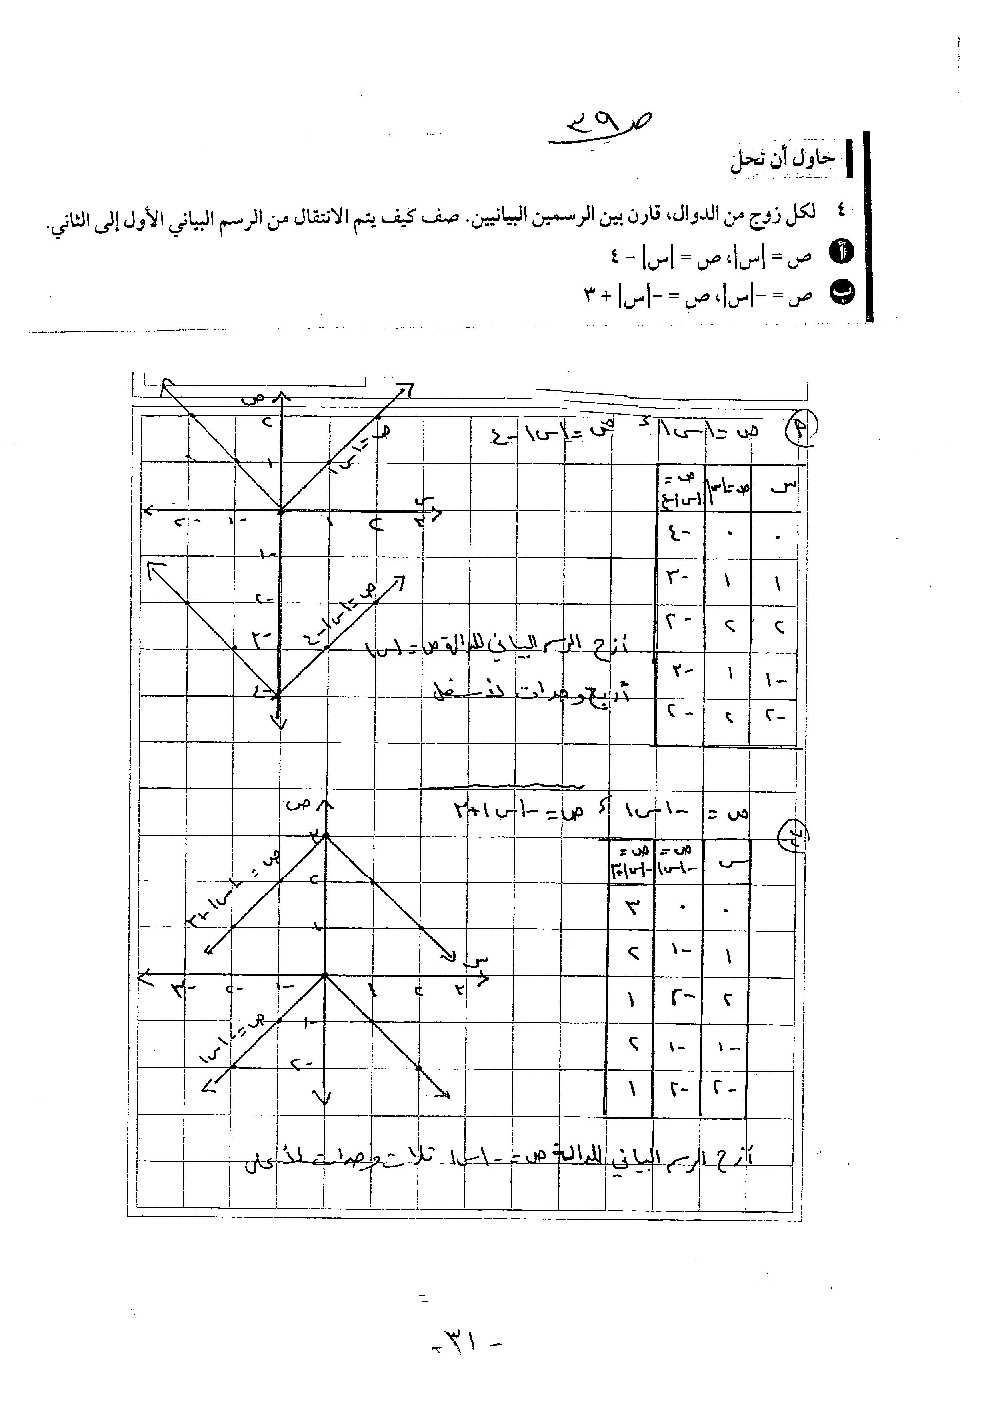 ص ٣٩
حاول أن تحل
٤ لكل زوج من الدوال، قارن بين الرسمين البيانيين. صف كيف يتم الانتقال من الرسم البياني الأول إلى الثاني.
أ ص = |س|، ص = |س| - ٤
ب ص = -|س|، ص = -|س| + ٣
أ ص = |س| ، ص = |س| - ٤
س ص = |س| ص = |س| - ٤
٠ ٠ -٤
١ ١ -٣
٢ ٢ -٢
-١ ١ -٣
-٢ ٢ -٢
ص
٢
ص = |س|
١
س
-٢ -١ ١ ٢ ٣
-١
-٢
ص = |س| - ٤
-٣
-٤
أزح الرسم البياني للدالة ص = |س|
أربع وحدات لأسفل
ب ص = -|س| ، ص = -|س| + ٣
س ص = -|س| ص = -|س| + ٣
٠ ٠ ٣
١ -١ ٢
٢ -٢ ١
-١ -١ ٢
-٢ -٢ ١
ص
٣
ص = -|س| + ٣
٢
١
س
-٣ -٢ -١ ١ ٢ ٣
ص = -|س|
-١
-٢
أزح الرسم البياني للدالة ص = -|س| ثلاث وحدات لأعلى
- ٣١ -